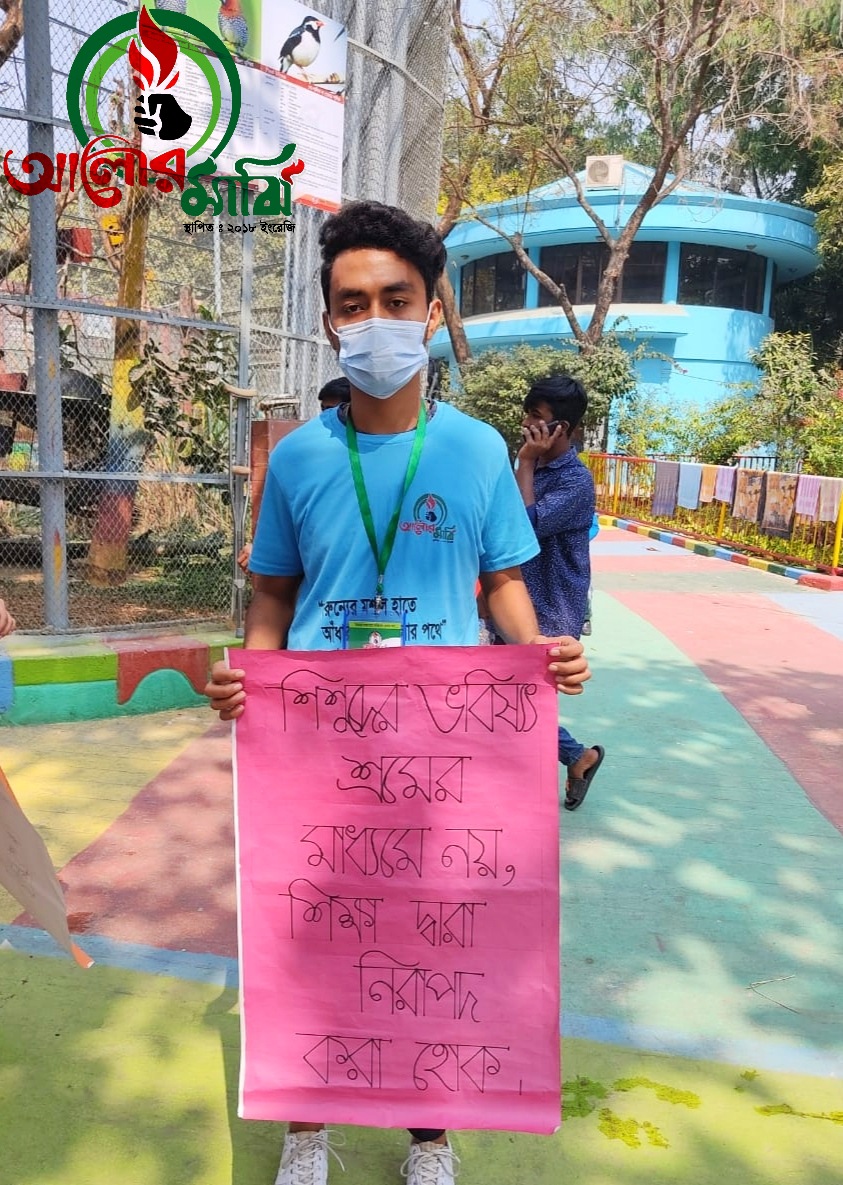 আলোর মাঝি
স্থাপিত : ২০১৮ ইংরেজি
আলোর
মাঝি
"রুন্যের মশাল হাতে
আঁধা র পথে"
শিশুদের ভবিষ্যৎ
শ্রমের
মাধ্যমে নয়,
শিক্ষা দ্বারা
নিরাপদ
করা হোক।